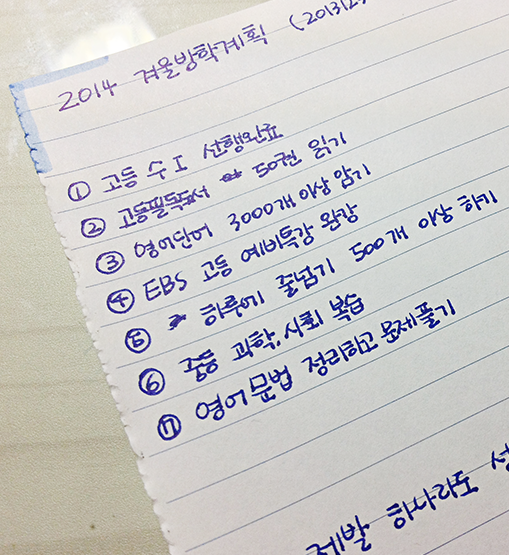 2014 겨울방학계획 (201312
① 고등 수 I 선행완료
② 고등필독도서 50권 읽기
③ 영어단어 3000개 이상 암기
④ EBS 고등 예비특강 완강
⑤ 하루에 줄넘기 500개 이상 하기
⑥ 중등 과학.사회 복습
⑦ 영어문법 정리하고 문제풀기
제발 하나라도